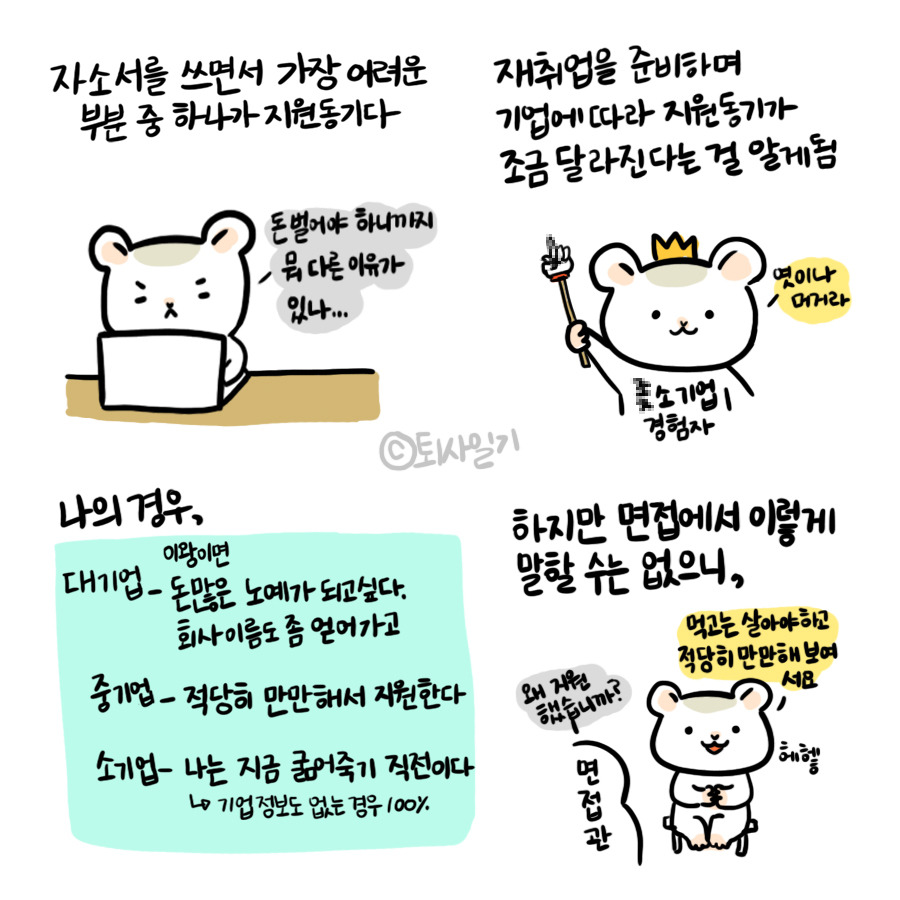 자소서를 쓰면서 가장 어려운
부분 중 하나가 지원동기다
돈 벌어야 하니까지
뭐 다른 이유가
있나...
재취업을 준비하며
기업에 따라 지원동기가
조금 달라진다는 걸 알게됨
엿이나
머거라
소기업
경험자
©퇴사일기
나의 경우,
이왕이면
대기업 - 돈많은 노예가 되고싶다.
회사이름도 좀 얻어가고
중기업 - 적당히 만만해서 지원한다
소기업 - 나는 지금 굶어죽기 직전이다
↳ 기업정보도 없는 경우 100%
하지만 면접에서 이렇게
말할 수는 없으니,
먹고는 살아야하고
적당히 만만해 보여
서요
왜 지원
했습니까?
면접관
헤헿